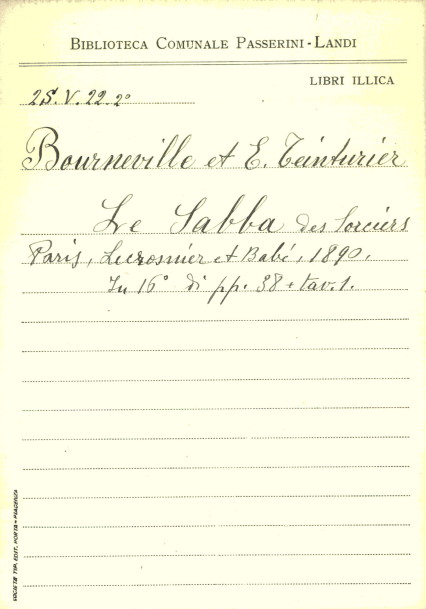 BIBLIOTECA COMUNALE PASSERINI-LANDI
LIBRI ILLICA
2S. V. 22. 2º
Bourneville et E. Teinturier
Le Sabba des Sorciers
Paris, Lecrosnier et Babé, 1890.
In 16° di pp. 38 + tav. 1.
SOCIETÀ TIP. EDIT. PORTA - PIACENZA